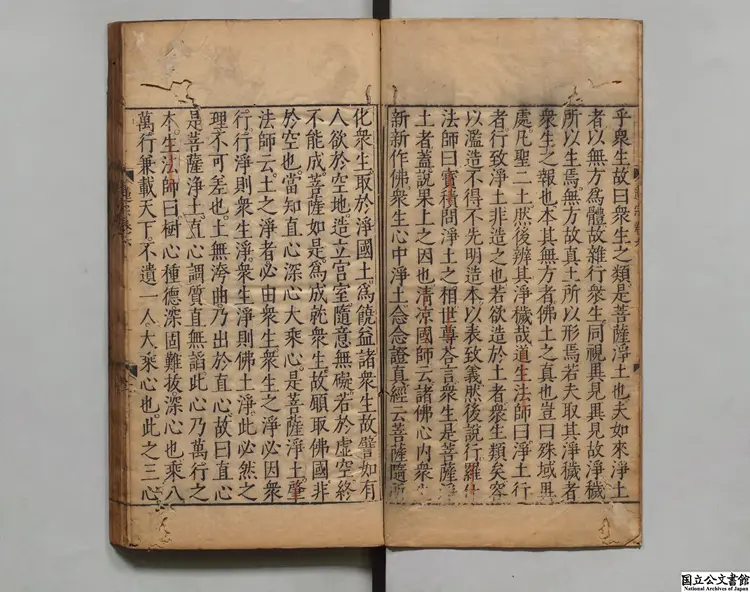 乎衆生故曰衆生之類是菩薩淨土也夫如來淨土
者以無方爲體故雜行衆生同視異見異見故淨穢
所以生焉無方故眞土所以形焉若夫取其淨穢者
衆生之報也本其無方者佛土之眞也豈曰殊域異
處凡聖二土然後辨其淨穢哉道生法師曰淨土行
者行致淨土非造之也若欲造於土者衆生類矣容
以濫造不得不先明造本以表致義然後說行羅什
法師曰寶積問淨土之相世尊荅言衆生是菩薩淨
土者蓋說果上之因也清凉國師云諸佛心内衆生
新新作佛衆生心中淨土念念證眞經云菩薩隨所
化衆生取於淨國土爲饒益諸衆生故譬如有
人欲於空地造立宫室隨意無礙若於虛空終
不能成菩薩如是爲成就衆生故願取佛國非
於空也當知直心深心大乘心是菩薩淨土肇
法師云土之淨者必由衆生衆生之淨必因衆
行行淨則衆生淨衆生淨則佛土淨此必然之
理不可差也土無洿曲乃出於直心故曰直心
是菩薩淨土直心謂質直無謟此心乃萬行之
本生法師曰樹心種德深固難拔深心也乘八
萬行兼載天下不遺一人大乘心也此之三心
国立公文書館
National Archives of Japan